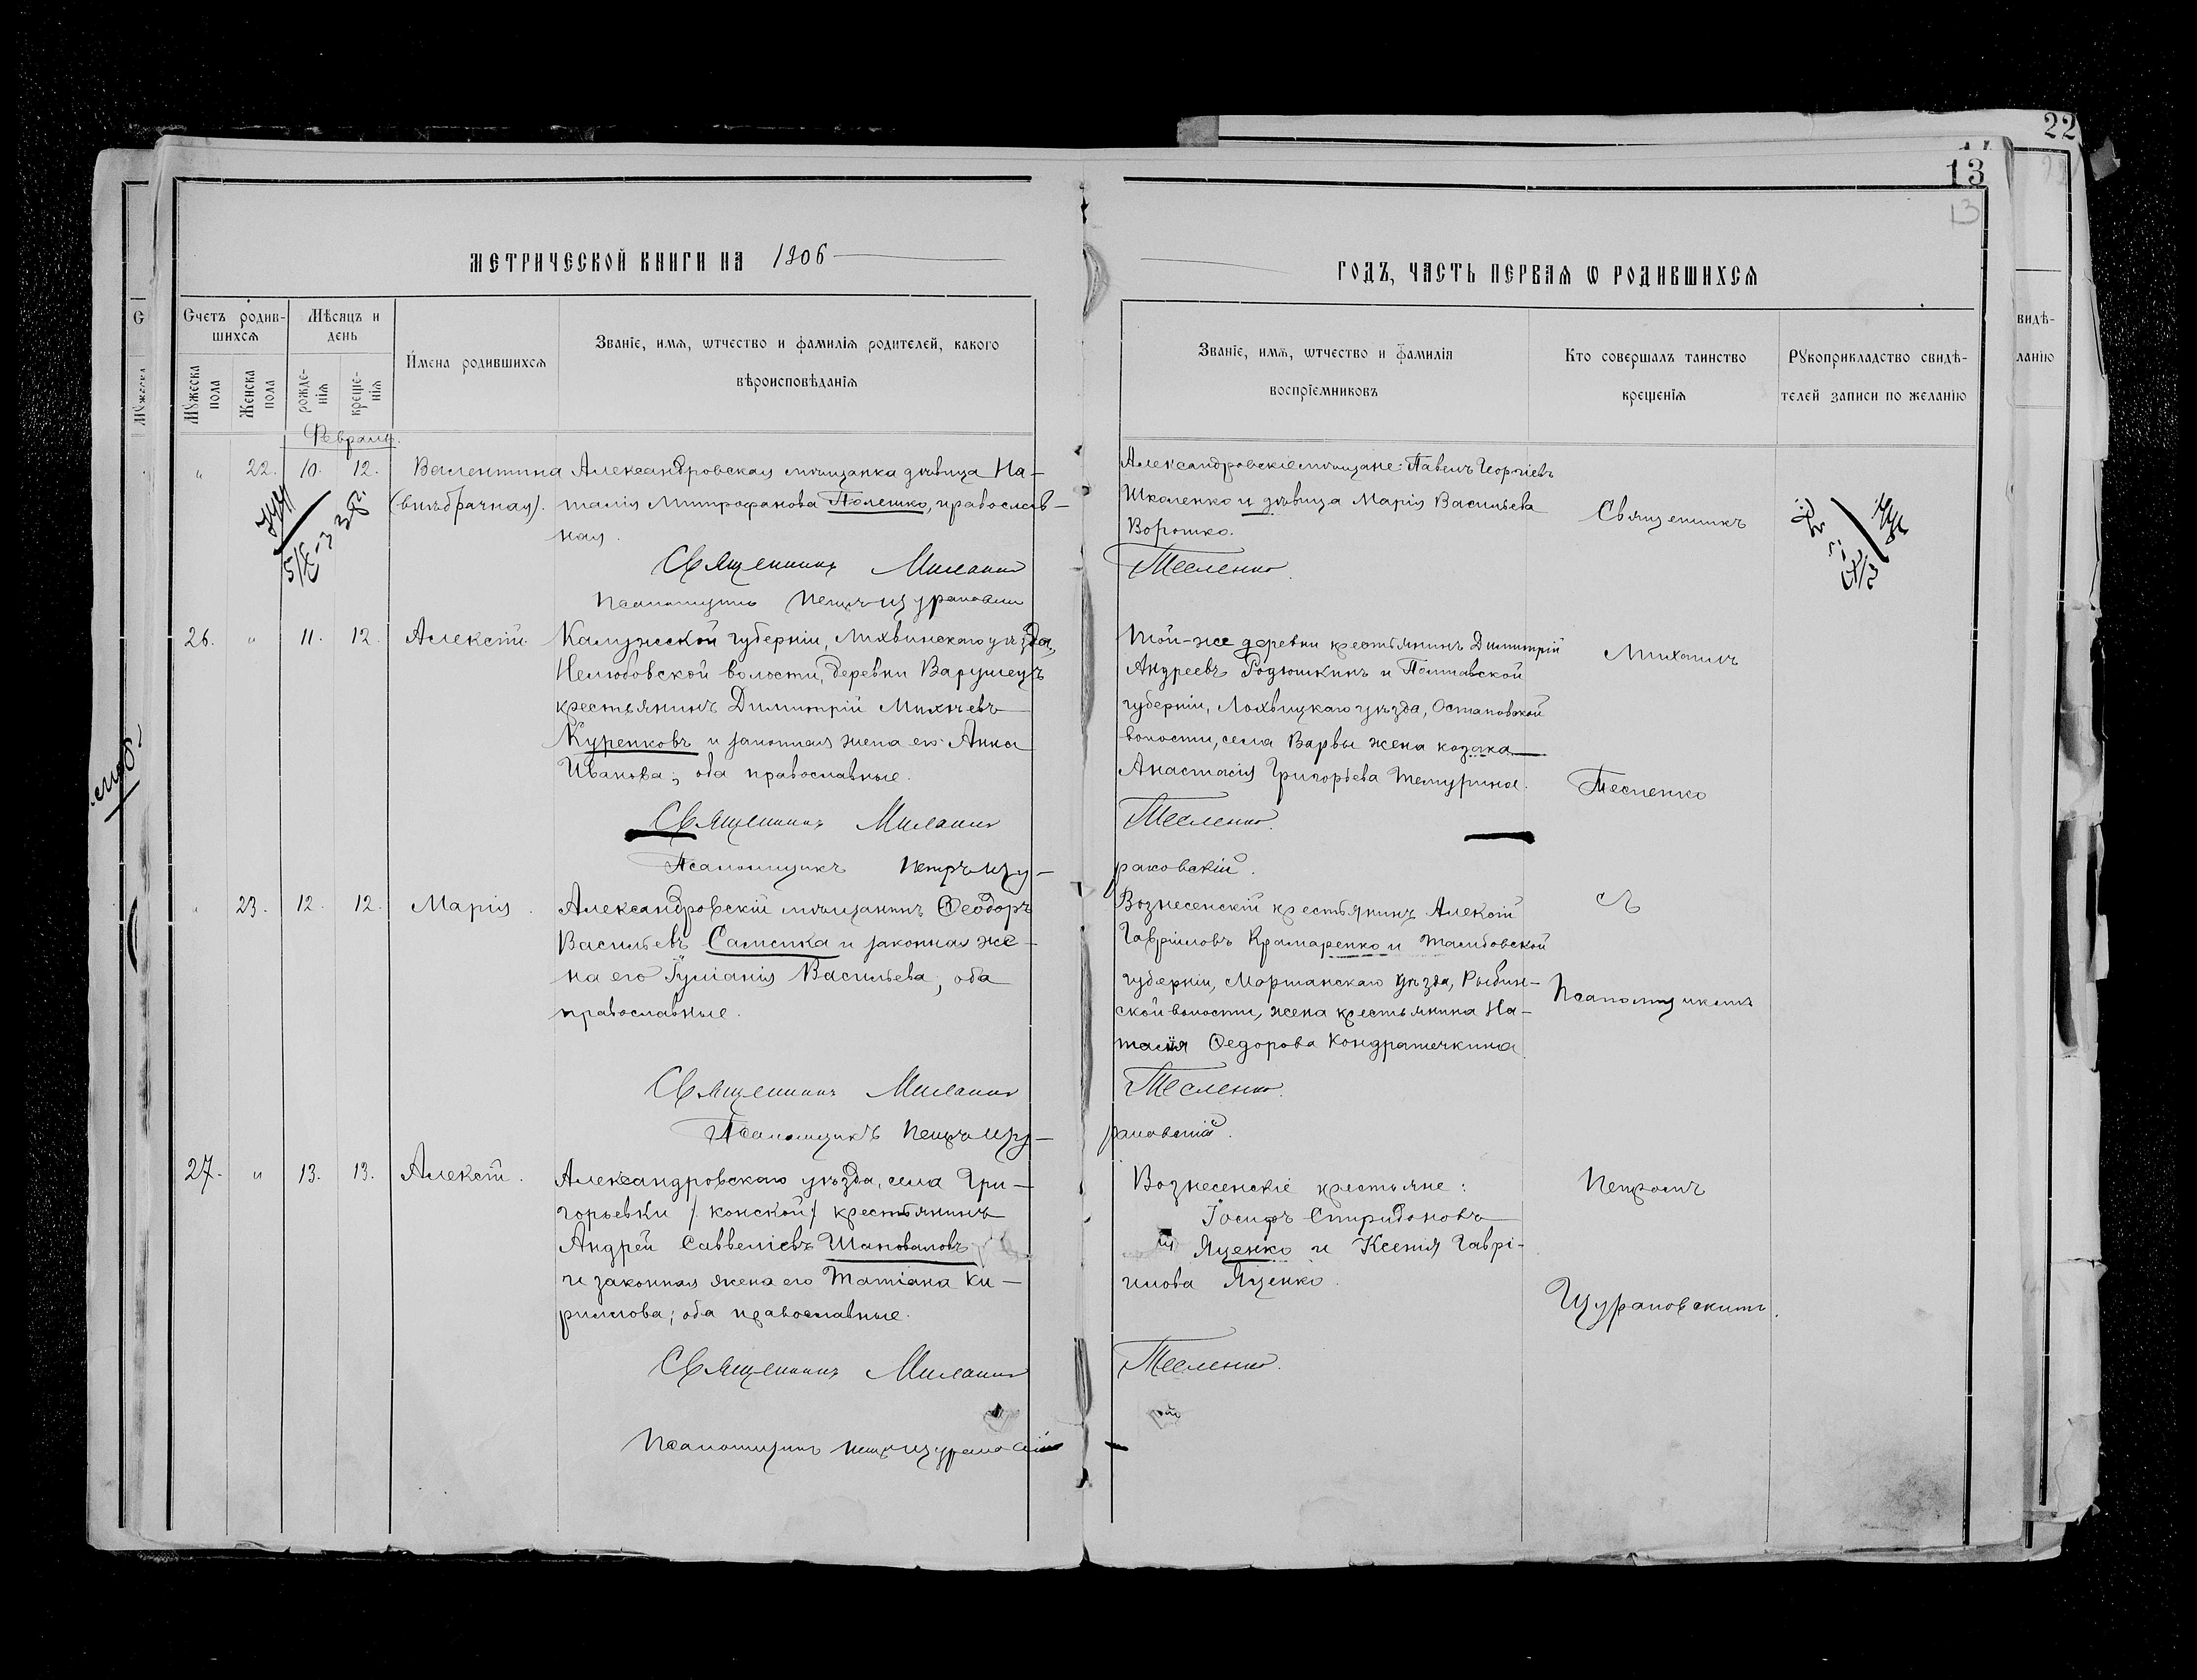 22
13
13
МЕТРИЧЕСКОЙ КНИГИ НА 1906
ГОДЪ, ЧАСТЬ ПЕРВАЯ Ѡ РОДИВШИХСЯ
Счетъ родив-
шихся
Мужеска пола
Женска пола
Мѣсяцъ и
день
рожде-
нія
креще-
нія
Имена родившихся
Званіе, имя, ѡтчество и фамилія родителей, какого
вѣроисповѣданія
Званіе, имя, ѡтчество и фамилія
воспріемниковъ
Кто совершалъ таинство
крещенія
Рукоприкладство свидѣ-
телей записи по желанію
видѣ-
ланію
Февраль.
" 22. 10. 12. Валентина
(внѣбрачная).
Александровская мѣщанка дѣвица На-
талія Митрофанова Полешко, православ-
ная.
Священникъ Михаилъ
Тесленко.
Псаломщикъ Петръ Щураковскій
Александровскіе мѣщане: Павелъ Георгіевъ
Школенко и дѣвица Марія Васильева
Ворошко.
Священникъ
26. " 11. 12. Алексѣй
Калужской губерніи, Лихвинскаго уѣзда,
Нелюбовской волости, деревни Варушецъ
крестьянинъ Димитрій Михѣевъ
Куренковъ и законная жена его Анна
Иванова; оба православные.
Священникъ Михаилъ
Тесленко.
Псаломщикъ Петръ Щу-
раковскій.
Той-же деревни крестьянинъ Димитрій
Андреевъ Родюшкинъ и Полтавской
губерніи, Лохвицкаго уѣзда, Остаповской
волости, села Варвы жена козака
Анастасія Григорьева Темурина.
Михаилъ
Тесленко
" 23. 12. 12. Марія.
Александровскій мѣщанинъ Ѳеодоръ
Васильевъ и законная же-
на его Іуліанія Васильева; оба
православные.
Священникъ Михаилъ
Тесленко.
Псаломщикъ Петръ Щу-
раковскій.
Вознесенскій крестьянинъ Алексій
Гавріиловъ Крамаренко и Тамбовской
губерніи, Моршанскаго уѣзда, Рыбин-
ской волости, жена крестьянина На-
талія Ѳедорова Кондратечкина
съ
Псаломщикомъ
27. " 13. 13. Алексѣй.
Александровскаго уѣзда, села Гри-
горьевки /конской/ крестьянинъ
Андрей Савеліевъ Шаповаловъ
и законная жена его Татіана Ки-
риллова; оба православные.
Священникъ Михаилъ
Тесленко.
Псаломщикъ Петръ Щураковскій
Вознесенскіе крестьяне:
Іосифъ Спиридоновъ
Яценко и Ксенія Гаврі-
илова Яценко.
Петромъ
Щураковскимъ.